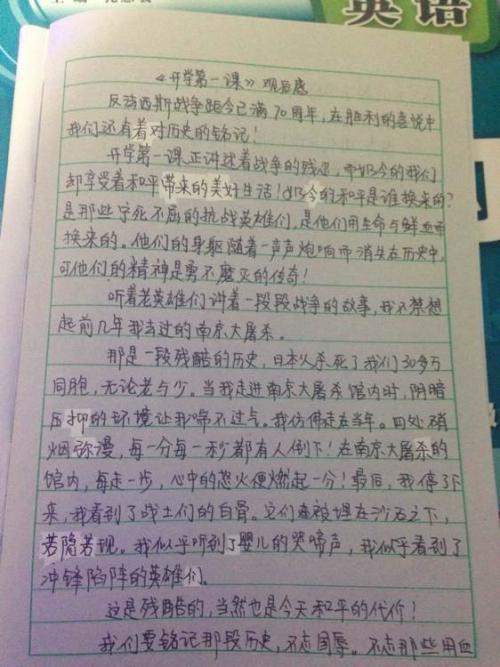 英语
《开学第一课》观后感
反法西斯战争距今已满70周年，在胜利的喜悦中
我们还有着对历史的铭记！
开学第一课正讲述着战争的残忍，而如今的我们
却享受着和平带来的美好生活！如今的和平是谁换来的？
是那些宁死不屈的抗战英雄们，是他们用生命与鲜血而
换来的。他们的身躯随着一声声炮响而消失在历史中，
可他们的精神是勇不磨灭的传奇！
听着老英雄们讲着一段段战争的故事，我不禁想
起前几年我去过的南京大屠杀。
那是一段残酷的历史，日本人杀死了我们30多万
同胞，无论老与少。当我走进南京大屠杀馆内时，阴暗
压抑的环境让我喘不过气。我仿佛走在当年。四处硝
烟弥漫，每一分每一秒都有人倒下！在南京大屠杀的
馆内，每走一步，心中的怒火便燃起一分！最后，我停了下
来，我看到了战士们的白骨。它们正被埋在沙石之下，
若隐若现。我似乎听到了婴儿的哭啼声，我似乎看到了
冲锋陷阵的英雄们。
这是残酷的，当然也是今天和平的代价！
我们要铭记那段历史，不忘国辱。不忘那些用血